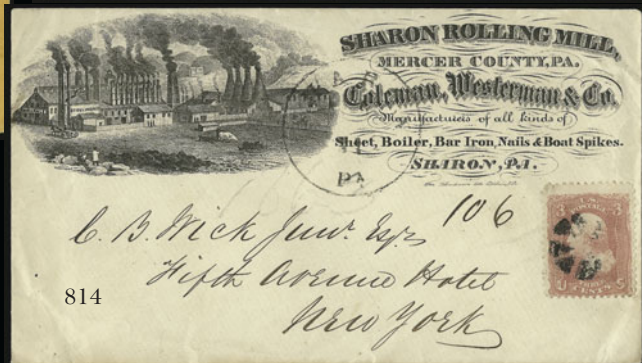 SHARON ROLLING MILL,
MERCER COUNTY, PA.
Coleman, Westerman & Co.
Manufacturers of all kinds of
Sheet, Boiler, Bar Iron, Nails & Boat Spikes.
SHARON, PA.
PA
106
C. B. Wick Junr. Esq.
Fifth Avenue Hotel
New York
814
3
3
U
CENTS
S